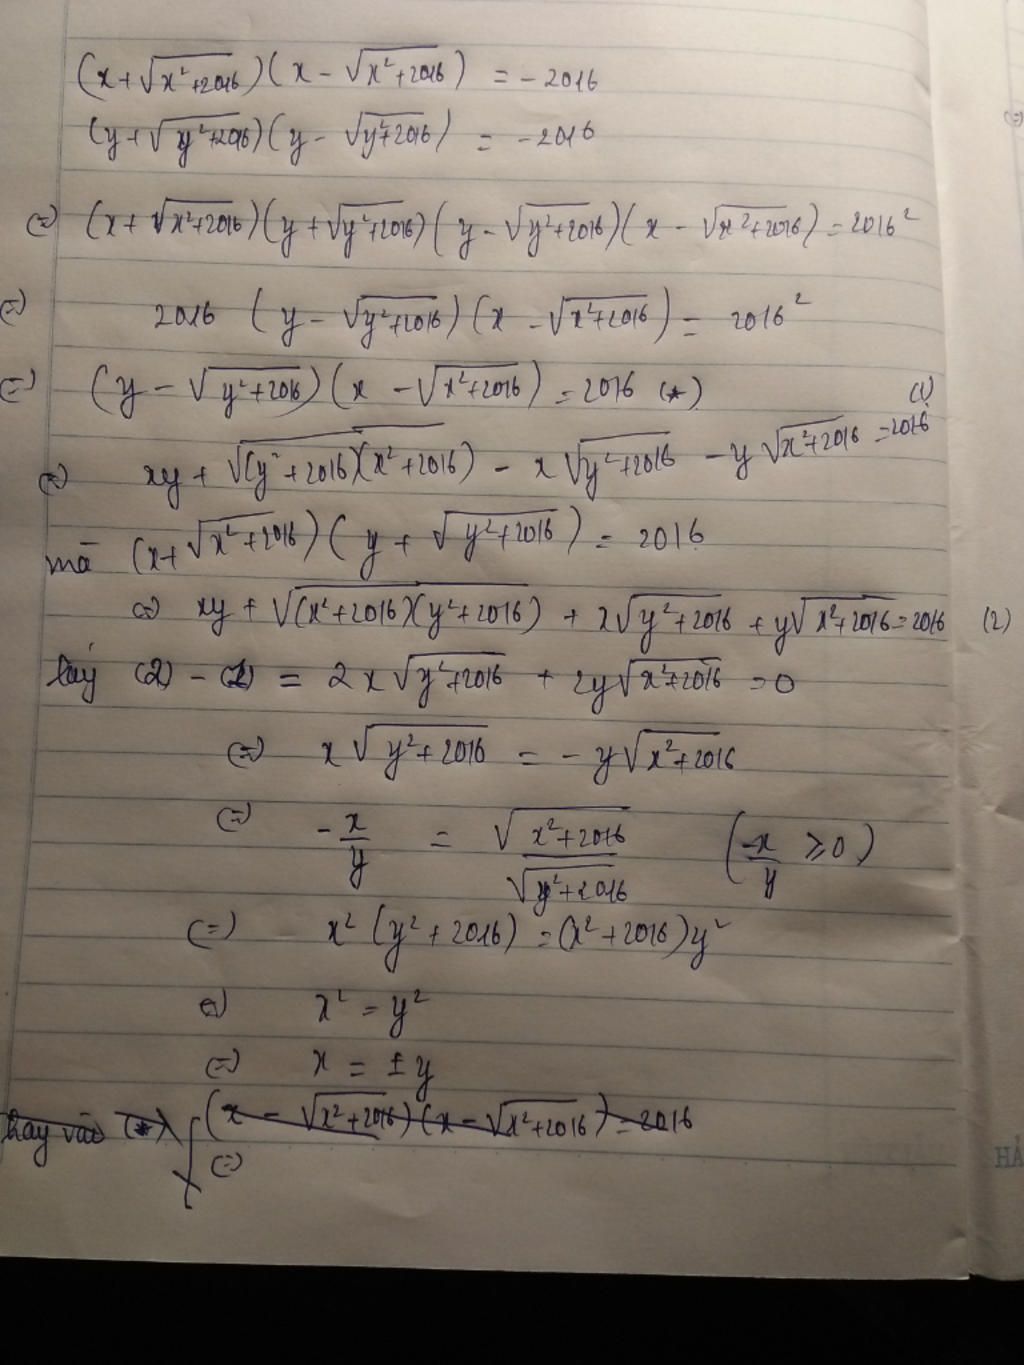 (x + √(x²+2016))(x - √(x²+2016)) = -2016
(y + √(y²+2016))(y - √(y²+2016)) = -2016
(=) (x + √(x²+2016))(y + √(y²+2016))(y - √(y²+2016))(x - √(x²+2016)) = 2016²
(=) 2016 (y - √(y²+2016))(x - √(x²+2016)) = 2016²
(=) (y - √(y²+2016))(x - √(x²+2016)) = 2016 (*)
(=) xy + √((y²+2016)(x²+2016)) - x√(y²+2016) - y√(x²+2016) = 2016 (1)
mà (x + √(x²+2016))(y + √(y²+2016)) = 2016
(=) xy + √((x²+2016)(y²+2016)) + x√(y²+2016) + y√(x²+2016) = 2016 (2)
lấy (2) - (1) = 2x√(y²+2016) + 2y√(x²+2016) = 0
(=) x√(y²+2016) = -y√(x²+2016)
(=) -x/y = √(x²+2016)/√(y²+2016) (-x/y ≥ 0)
(=) x²(y²+2016) = (x²+2016)y²
(=) x² = y²
(=) x = ±y
thay vào (*) (x - √(x²+2016))(x - √(x²+2016)) = 2016
(=)
ẢH